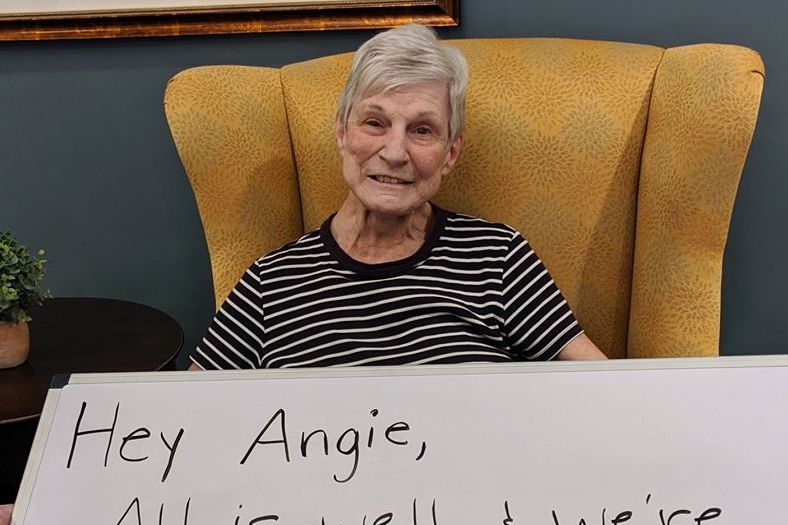 Hey Angie,
All is well & we're